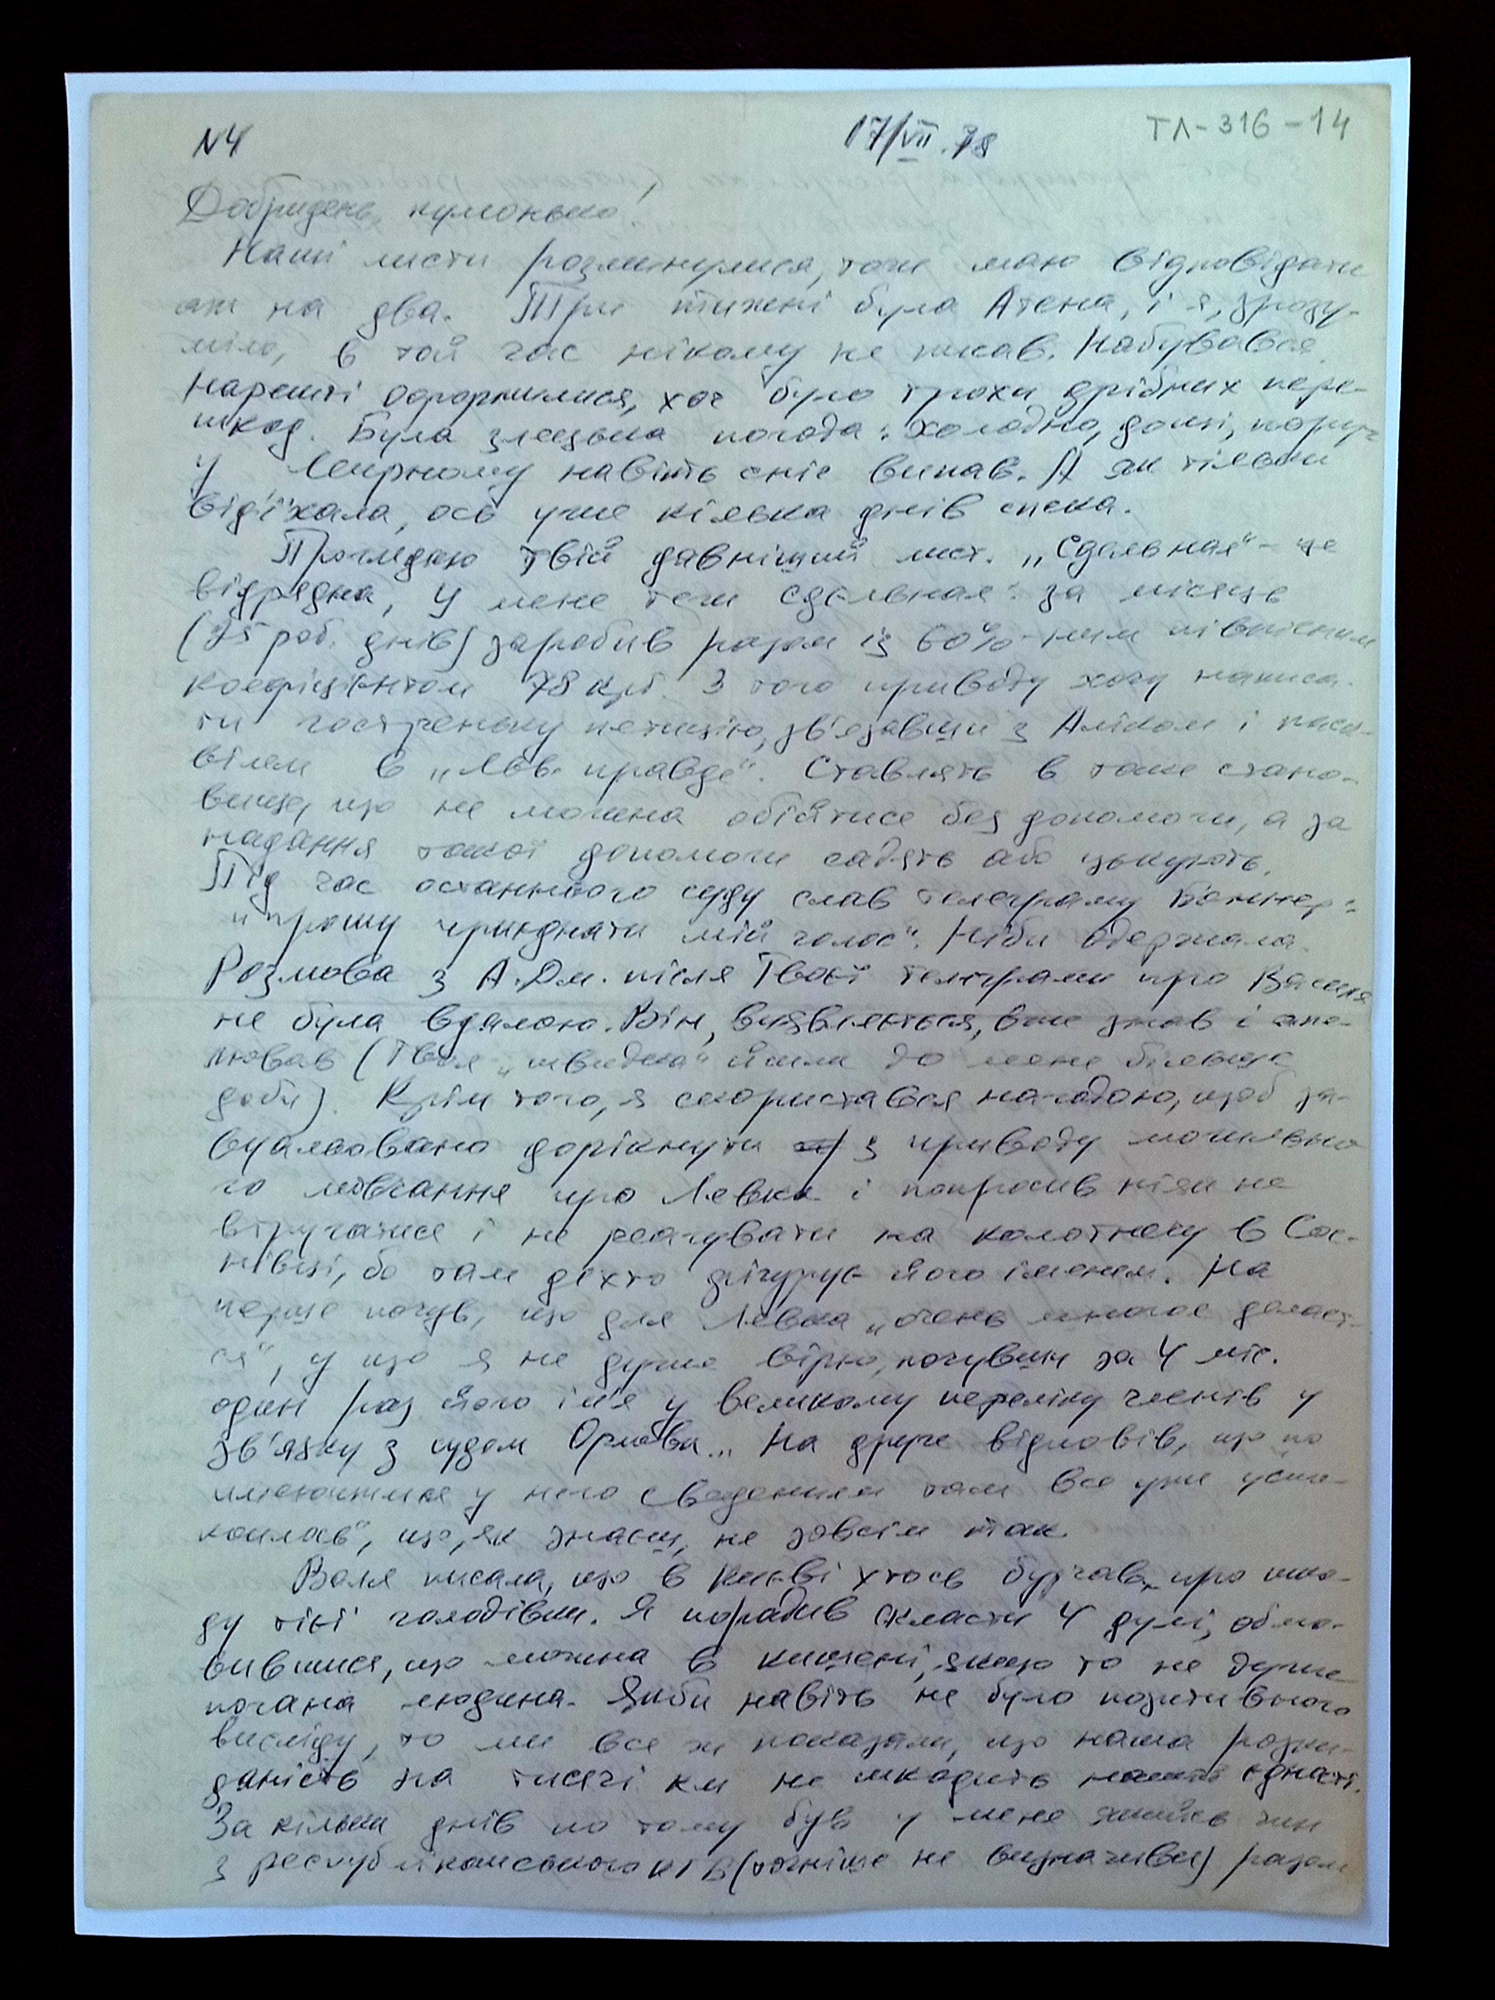 N4 17/VII.78 ТЛ-316-14
Добридень, кумонько!
Наші листи розминулися, тож маю відповідати
аж на два. Три тижні була Атена, і я, зрозу-
міло, в той час нікому не писав. Набувався.
Нарешті оформилися, хоч було трохи дрібних пере-
шкод. Була злецька погода: холодно, дощі, поруч
у Мирному навіть сніг випав. А як тільки
від'їхала, ось уже кілька днів спека.
Проглядаю Твій давніший лист. „Сдельная" - це
відрядна, У мене теж сдельная: за місяць
(25 роб. днів) заробив разом із 60%-ним північним
коефіцієнтом 78 крб. З того приводу хочу написа-
ти гостреньку петицію, зв'язавши з Аліком і паск-
вілем в „Льв. правде". Ставлять в таке стано-
вище, що не можна обійтися без допомоги, а за
надання такої допомоги садять або цькують.
Під час останнього суду слав телеграму Боннер:
"прошу приєднати мій голос". Ніби одержала.
Розмова з А.Дм. після Твоєї телеграми про Василя
не була вдалою. Він, виявляється, вже знав і
(Твоя „швидка" йшла до мене більше
доби). Крім того, я скористався нагодою, щоб за-
вуальовано дорікнути з приводу
го мовчання про Левка і попросив ніяк не
втручатися і не реагувати на колотнечу в Сос-
нівці, бо там дехто фігурує його іменем. На
перше почув, що для Левка „очень многое делает-
ся", у що я не дуже вірю, почувши за 4 міс.
один раз його ім'я у великому переліку членів у
зв'язку з судом Орлова... На друге відповів, що „по
имеющимся у него сведениям там все уже успо-
коилось", що, як знаєш, не зовсім так.
Воля писала, що в Києві хтось бурчав про шко-
ду тієї голодівки. Я порадив скласти 4 дулі, обмо-
вившися, що можна в кишені, якщо то не дуже
погана людина. Якби навіть не було позитивного
висліду, то ми все ж показали, що наша розки-
даність на тисячі км не шкодить нашій єдності.
За кілька днів по тому був у мене якийсь чин
з республіканського КГБ (точніше не визначився) разом